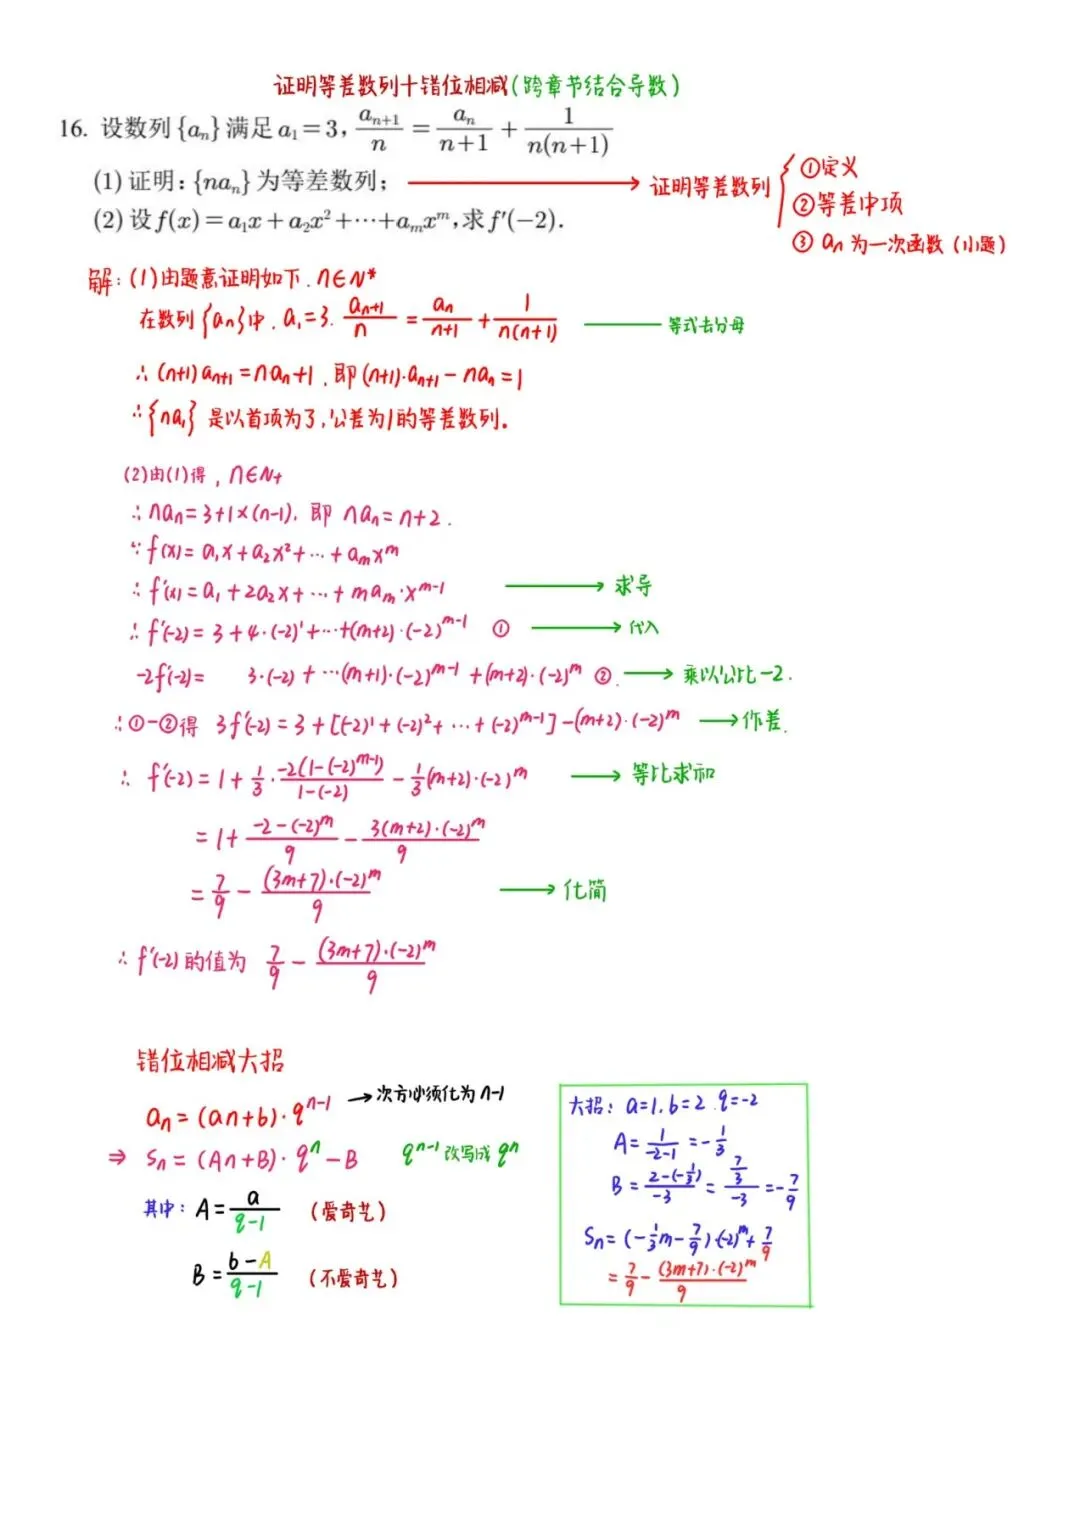 证明等差数列+错位相减(跨章节结合导数)
16. 设数列{aₙ}满足a₁=3, aₙ₊₁/n = aₙ/(n+1) + 1/(n(n+1))
(1)证明:{naₙ}为等差数列; → 证明等差数列 { ①定义
②等差中项
③ aₙ为一次函数(小题)
(2)设f(x)=a₁x+a₂x²+⋯+aₘxᵐ,求f′(-2).
解:(1)由题意证明如下.n∈N*
在数列{aₙ}中.a₁=3. aₙ₊₁/n = aₙ/(n+1) + 1/(n(n+1)) —— 等式去分母
∴(n+1)aₙ₊₁=naₙ+1,即(n+1)·aₙ₊₁-naₙ=1
∴{na₁}是以首项为3,公差为1的等差数列。
(2)由(1)得,n∈N₊
∴naₙ=3+1×(n-1),即naₙ=n+2.
∵f(x)=a₁x+a₂x²+⋯+aₘxᵐ
∴f′(x)=a₁+2a₂x+⋯+maₘ·xᵐ⁻¹ → 求导
∴f′(-2)=3+4·(-2)¹+⋯+(m+2)·(-2)ᵐ⁻¹ ① → 代入
-2f′(-2)= 3·(-2)+⋯(m+1)·(-2)ᵐ⁻¹+(m+2)·(-2)ᵐ ②. → 乘以公比-2.
∴①-②得 3f′(-2)=3+[(-2)¹+(-2)²+⋯+(-2)ᵐ⁻¹]-(m+2)·(-2)ᵐ → 作差.
∴ f′(-2)=1+1/3·(-2(1-(-2)ᵐ⁻¹))/(1-(-2)) - 1/3(m+2)·(-2)ᵐ → 等比求和
=1+(-2-(-2)ᵐ)/9 - (3(m+2)·(-2)ᵐ)/9
=7/9 - ((3m+7)·(-2)ᵐ)/9 → 化简
∴f′(-2)的值为 7/9 - ((3m+7)·(-2)ᵐ)/9
错位相减大招
aₙ=(an+b)·qⁿ⁻¹ → 次方必须化为n-1
⇒ Sₙ=(An+B)·qⁿ-B qⁿ⁻¹改写成qⁿ
其中: A=a/(q-1) (爱奇艺)
B=(b-A)/(q-1) (不爱奇艺)
大招: a=1,b=2.q=-2
A=1/(-2-1)=-1/3
B=(2-(-1/3))/(-3)=(7/3)/(-3)=-7/9
Sₙ=(-1/3m-7/9)·(-2)ᵐ+7/9
=7/9 - ((3m+7)·(-2)ᵐ)/9